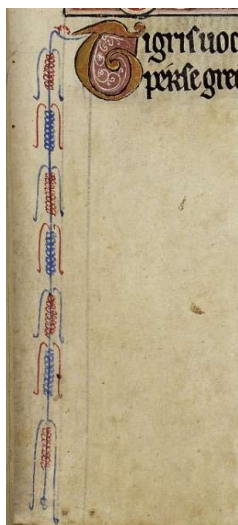 Tigris uoc
perse gre